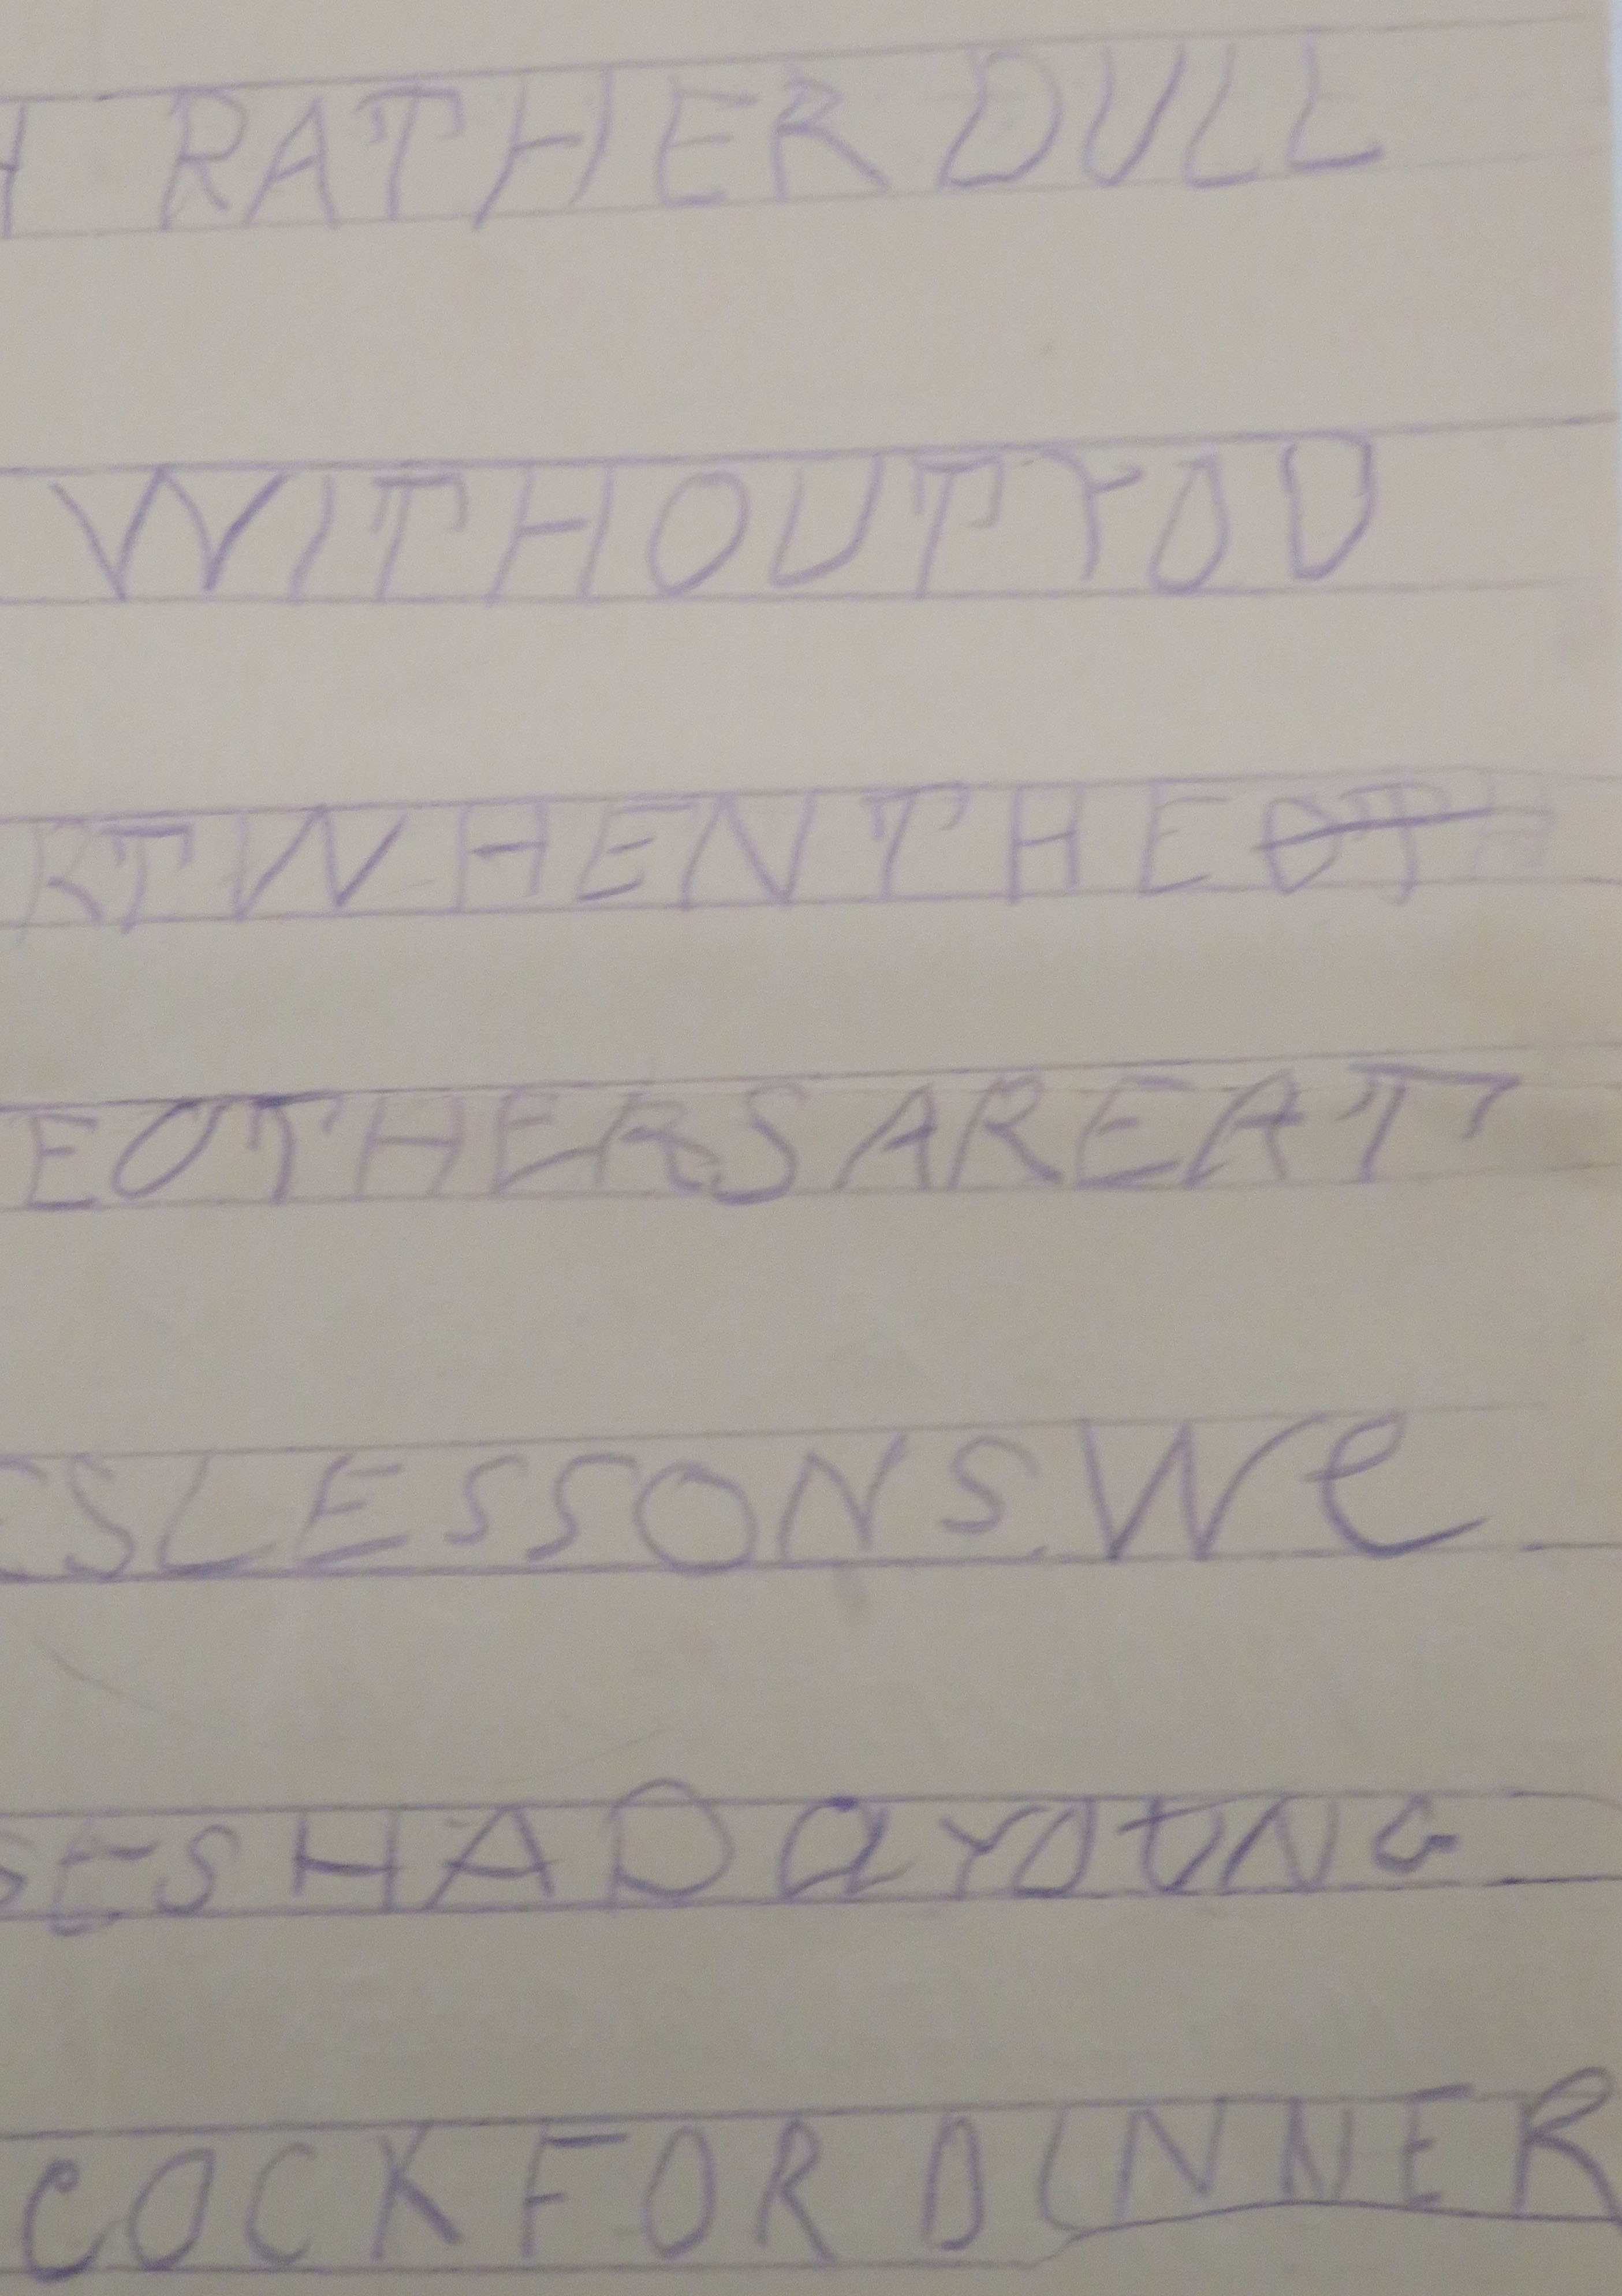 H RATHER DULL
WITHOUT YOU
RT WHEN THE OTH
E OTHERS ARE AT
ES LESSONS. We
GES HAD a YOUNG
COCK FOR DINNER